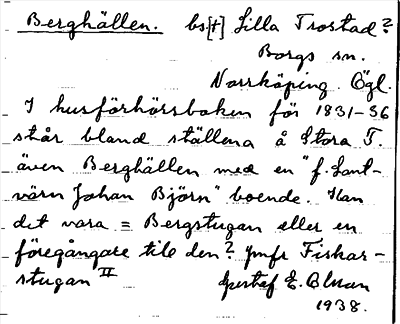 Berghällen. bs.[+] Lilla Trostad?
Borgs sn.
Norrköping. Ögl.
I husförhörsboken för 1831-36
står bland ställena å Stora T.
även Berghällen med en "f. Lant-
värn Johan Björn" boende. Kan
det vara = Bergstugan eller en
föregångare till den? Jmfr Fiskar-
stugan II Gustaf E. Blman
1938.